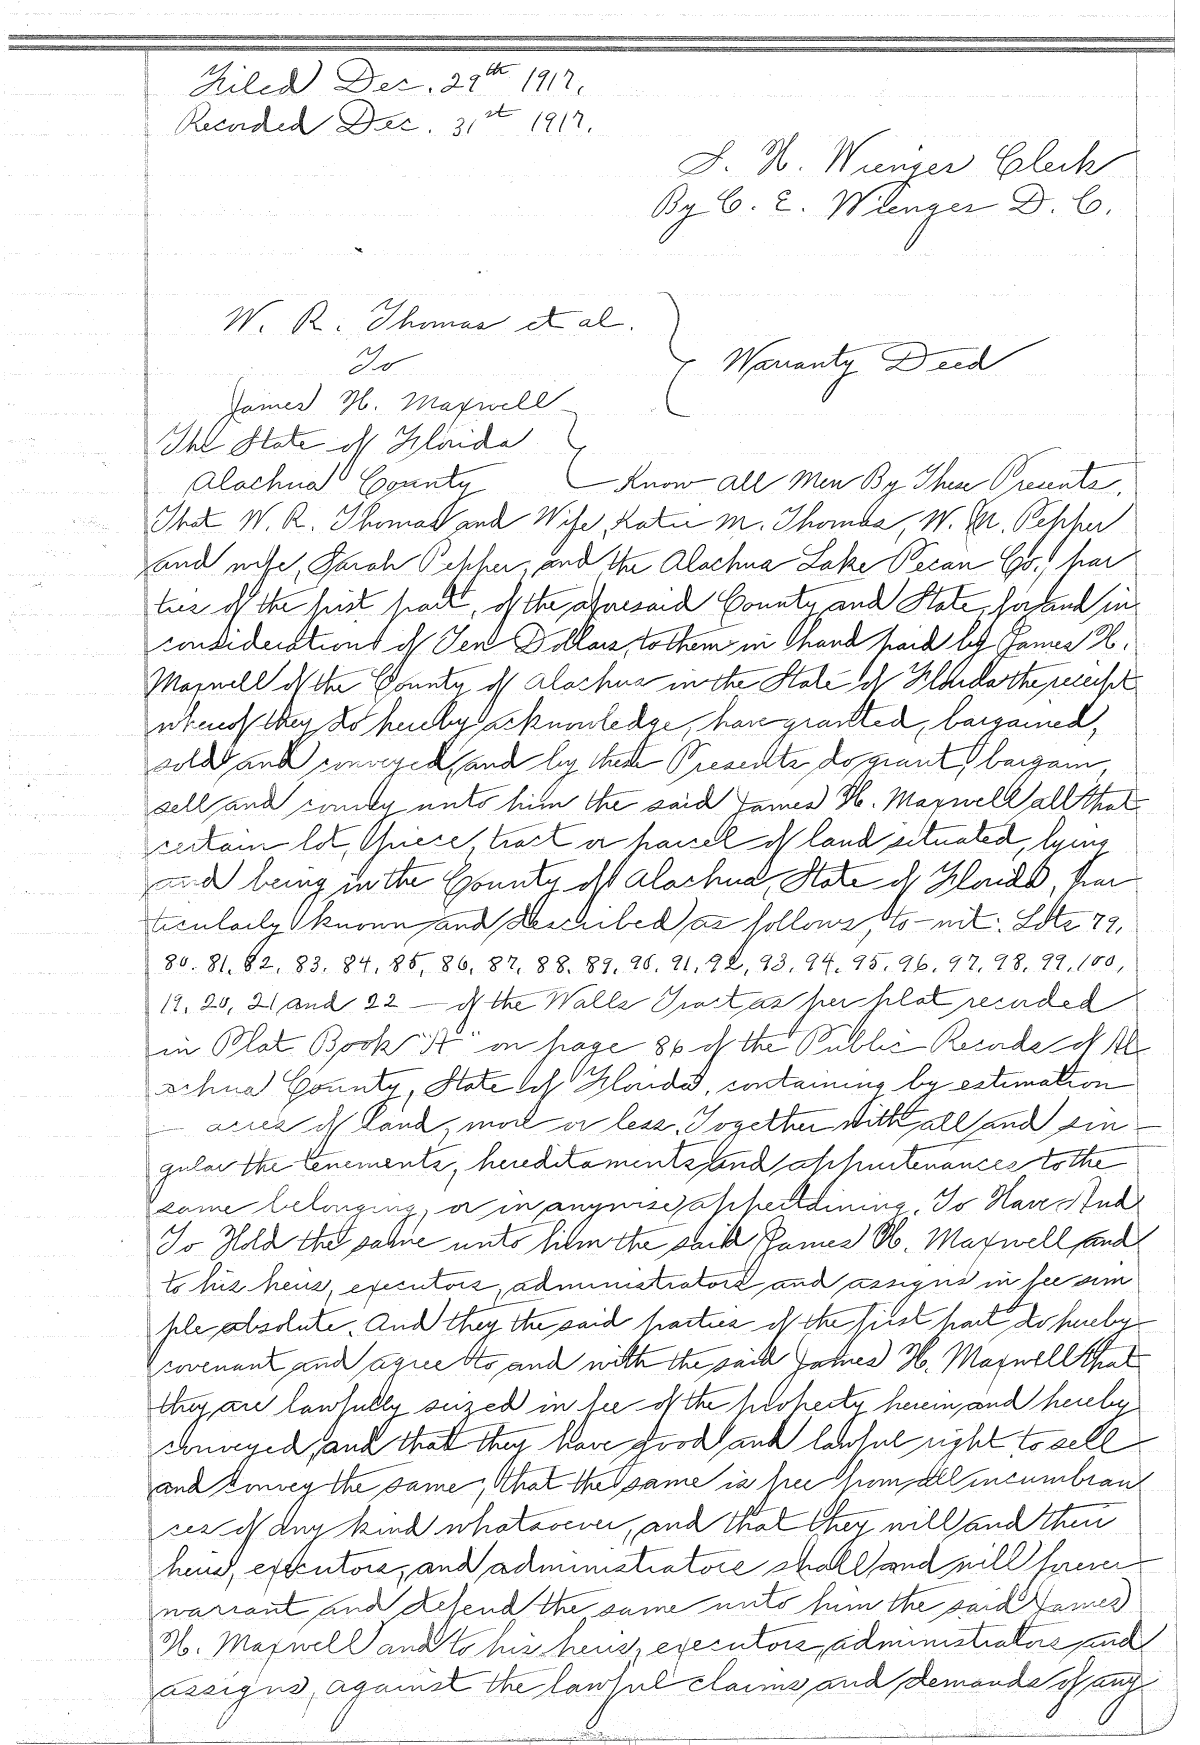 Filed Dec. 29th 1917.
Recorded Dec. 31st 1917.
S. H. Wienges Clerk
By C. E. Wienges D. C.
W. R. Thomas et al.
To
Warranty Deed
James H. Maxwell
The State of Florida
Alachua County Know all Men By These Presents,
That W. R. Thomas and Wife, Katie M. Thomas, W. M. Pepper
and wife, Sarah Pepper, and the Alachua Lake Pecan Co., par
ties of the first part, of the aforesaid County and State, for and in
consideration of Ten Dollars, to them in hand paid by James H.
Maxwell of the County of Alachua in the State of Florida the receipt
whereof they do hereby acknowledge, have granted, bargained,
sold and conveyed, and by these Presents do grant, bargain,
sell and convey unto him the said James H. Maxwell all that
certain lot, piece, tract or parcel of land situated, lying
and being in the County of Alachua, State of Florida, par
ticularly known and described as follows, to-wit: Lots 79,
80. 81, 82, 83. 84. 85, 86, 87, 88. 89, 90. 91, 92, 93, 94, 95, 96, 97, 98, 99, 100,
19, 20, 21 and 22 — of the Walls Tract, as per plat recorded
in Plat Book "A" on page 86 of the Public Records of Al
achua County, State of Florida, containing by estimation
— acres of land, more or less. Together with all and sin
gular the tenements, hereditaments and appurtenances to the
same belonging, or in anywise appertaining. To Have And
To Hold the same unto him the said James H. Maxwell and
to his heirs, executors, administrators and assigns in fee sim
ple absolute. And they the said parties of the first part do hereby
covenant and agree to and with the said James H. Maxwell that
they are lawfully seized in fee of the property herein and hereby
conveyed, and that they have good and lawful right to sell
and convey the same; that the same is free from all incumbran
ces of any kind whatsoever, and that they will and their
heirs, executors, and administrators shall and will forever
warrant and defend the same unto him the said James
H. Maxwell and to his heirs, executors, administrators and
assigns, against the lawful claims and demands of any